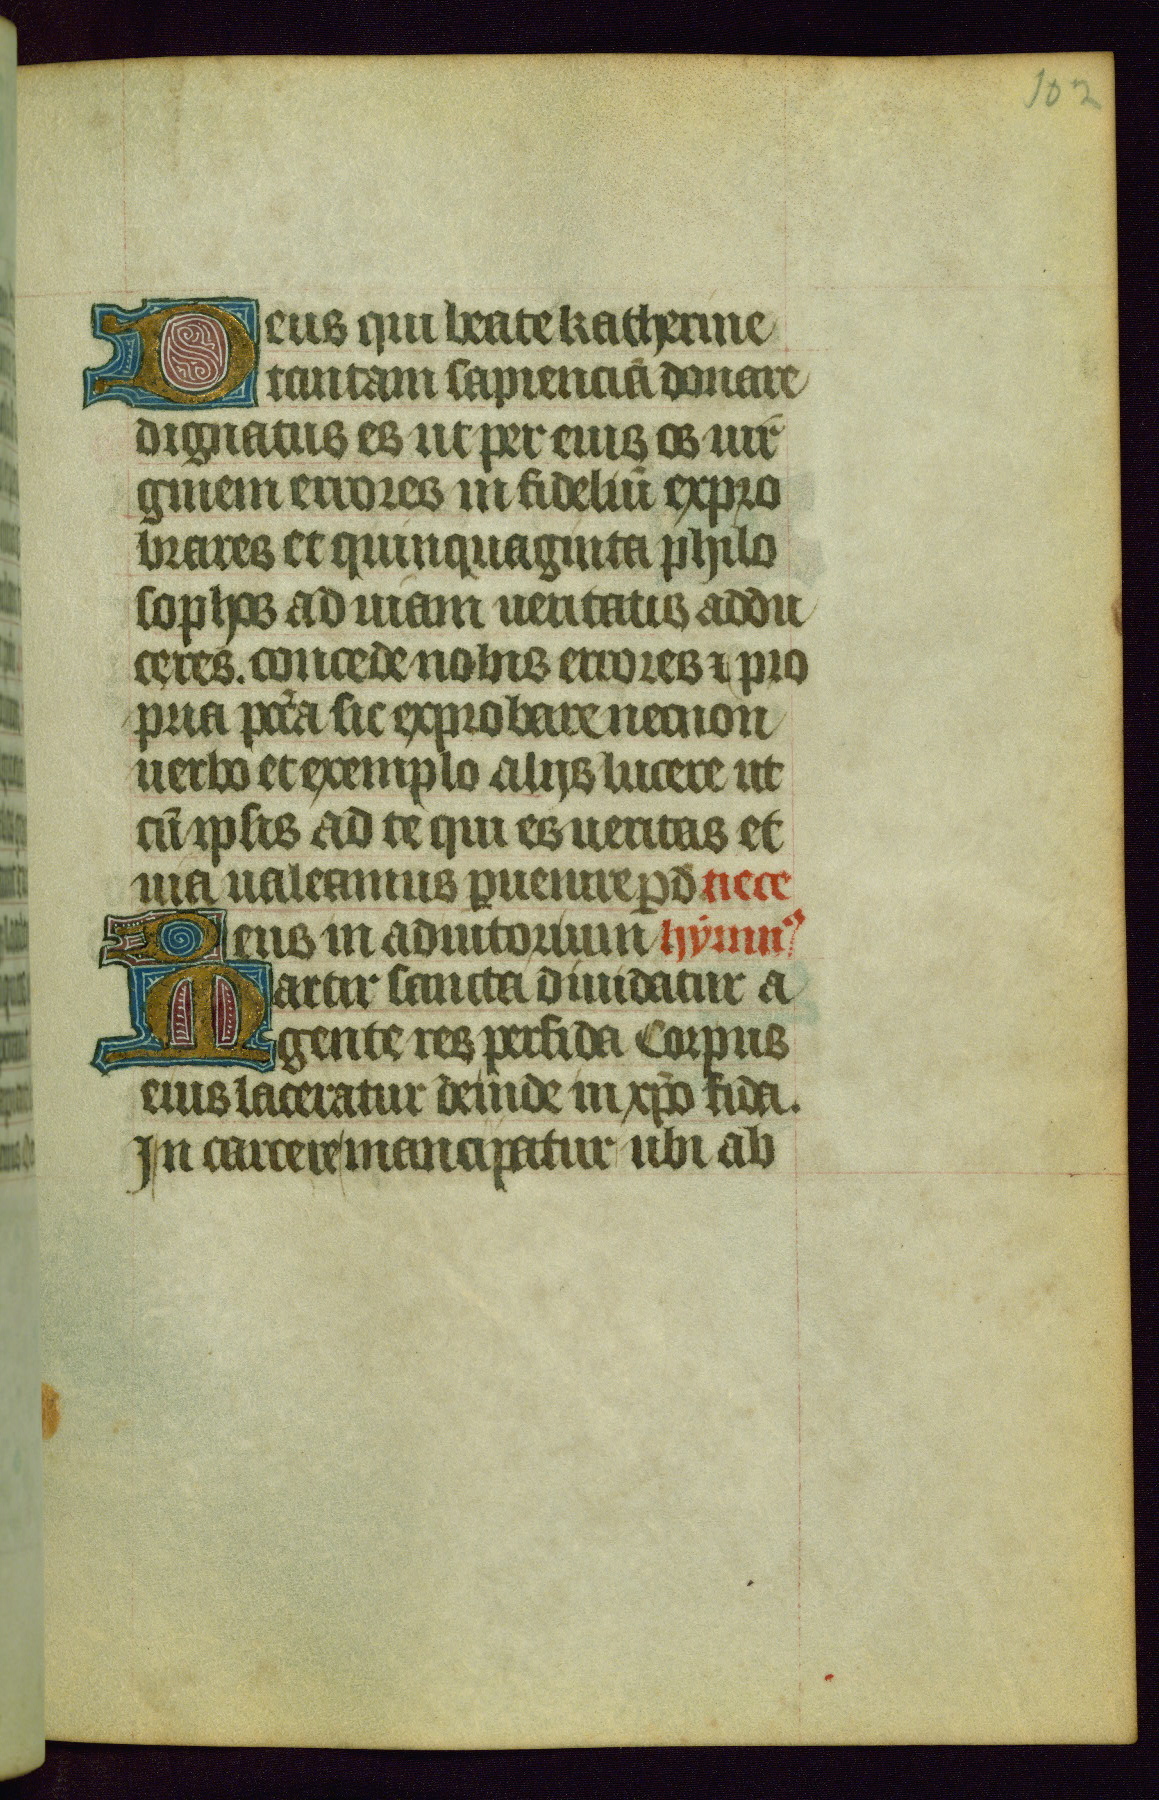 102
Deus qui beate katherine
tantam sapienciā donare
dignatus es ut per eius os uir
ginem errores in fideliū expro
brares et quinquaginta philo
sophos ad uiam ueritatis addu
ceres. concede nobis errores ⁊ pro
pria pctā sic exprobare necnon
uerbo et exemplo alijs lucere ut
cū ipsis ad te qui es ueritas et
uia ualeamus ꝑuenire ꝑ d
Deus in adiutorium hymnꝰ
Martir sancta diuidatur a
gente res perfida Corpus
eius laceratur deinde in xp̄o fida.
In carcere mancipatur ubi ab